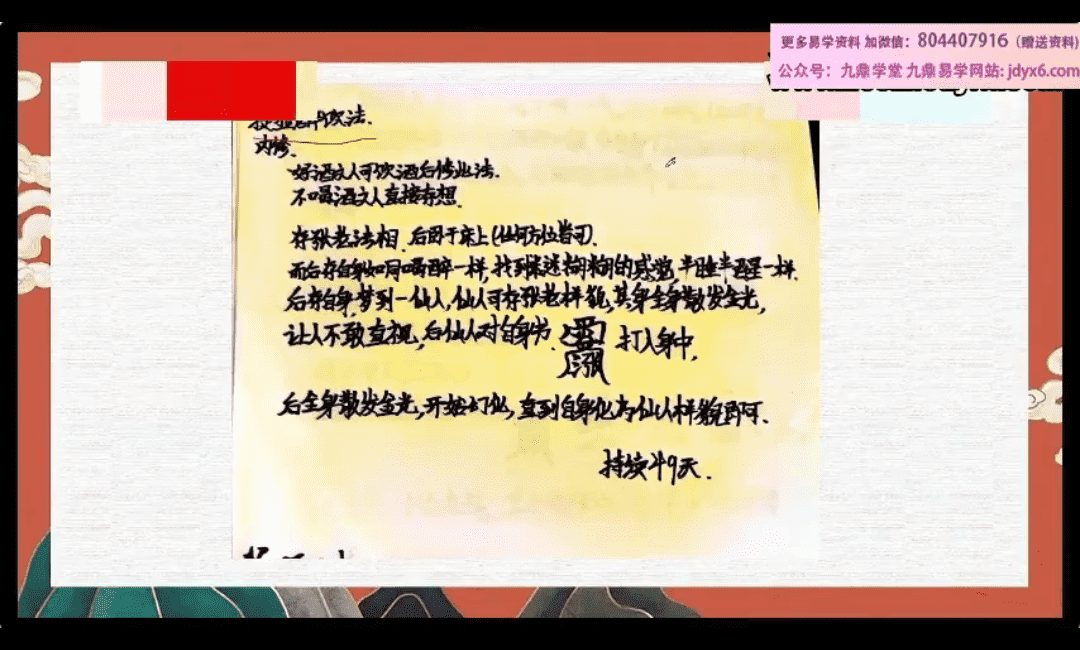 更多易学资料 加微信：804407916（赠送资料)
公众号：九鼎学堂 九鼎易学网站: jdyx6.com
饮法.
内修.
好酒之人可饮酒后修此法.
不喝酒之人直接存想.
存张老法相，后卧于床上(任何方位皆可).
而后存自身如同喝醉一样，找到迷糊糊的感觉，半睡半醒一样.
后存自身梦到一仙人，仙人可存张老样貌，其身全身散发金光，
让人不敢直视，后仙人对自身书.
打入身中，
后全身散发金光，开始幻化，直到自身化为仙人样貌即可.
持续49天.